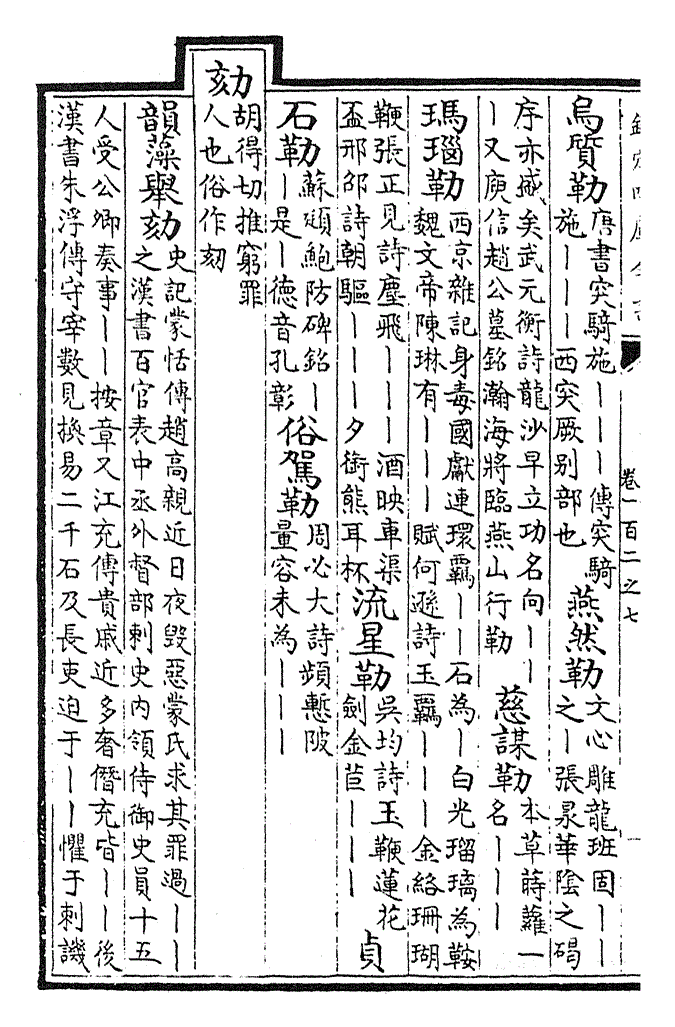 欽定四庫全書
卷一百二之七
烏質勒
唐書突騎施｜｜｜傳突騎
施｜｜｜西突厥别部也
燕然勒
文心雕龍班固｜｜
之｜張泉華陰之碣
序亦盛矣武元衡詩龍沙早立功名向｜｜
｜又庾信趙公墓銘瀚海將臨燕山行勒
慈謀勒
本草蒔蘿一
名｜｜｜
瑪瑙勒
西京雜記身毒國獻連環羈｜｜石為｜白光瑠璃為鞍
魏文帝陳琳有｜｜｜賦何遜詩玉羈｜｜｜金絡珊瑚
鞭張正見詩塵飛｜｜｜酒映車渠
盃邢邵詩朝驅｜｜｜夕銜熊耳杯
流星勒
吳均詩玉鞭蓮花
劍金苣｜｜｜
貞
石勒
蘇頲鮑防碑銘｜
｜是｜德音孔彰
俗駕勒
周必大詩頻慙陂
量容未為｜｜｜
劾
胡得切推窮罪
人也俗作刻
韻藻舉劾
史記蒙恬傳趙高親近日夜毀惡蒙氏求其罪過｜｜
之漢書百官表中丞外督部刺史内領侍御史員十五
人受公卿奏事｜｜按章又江充傳貴戚近多奢僭充皆｜｜後
漢書朱浮傳守宰數見換易二千石及長吏迫于｜｜懼于刺譏